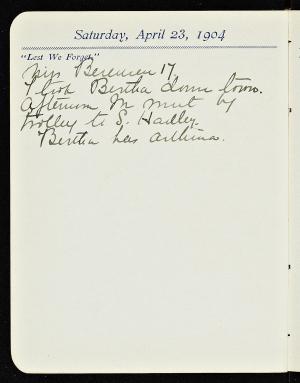 Saturday, April 23, 1904
"Lest We Forget"
17
I took Bertha down town.
Afternoon M went by
trolley to S. Hadley.
Bertha has asthma.